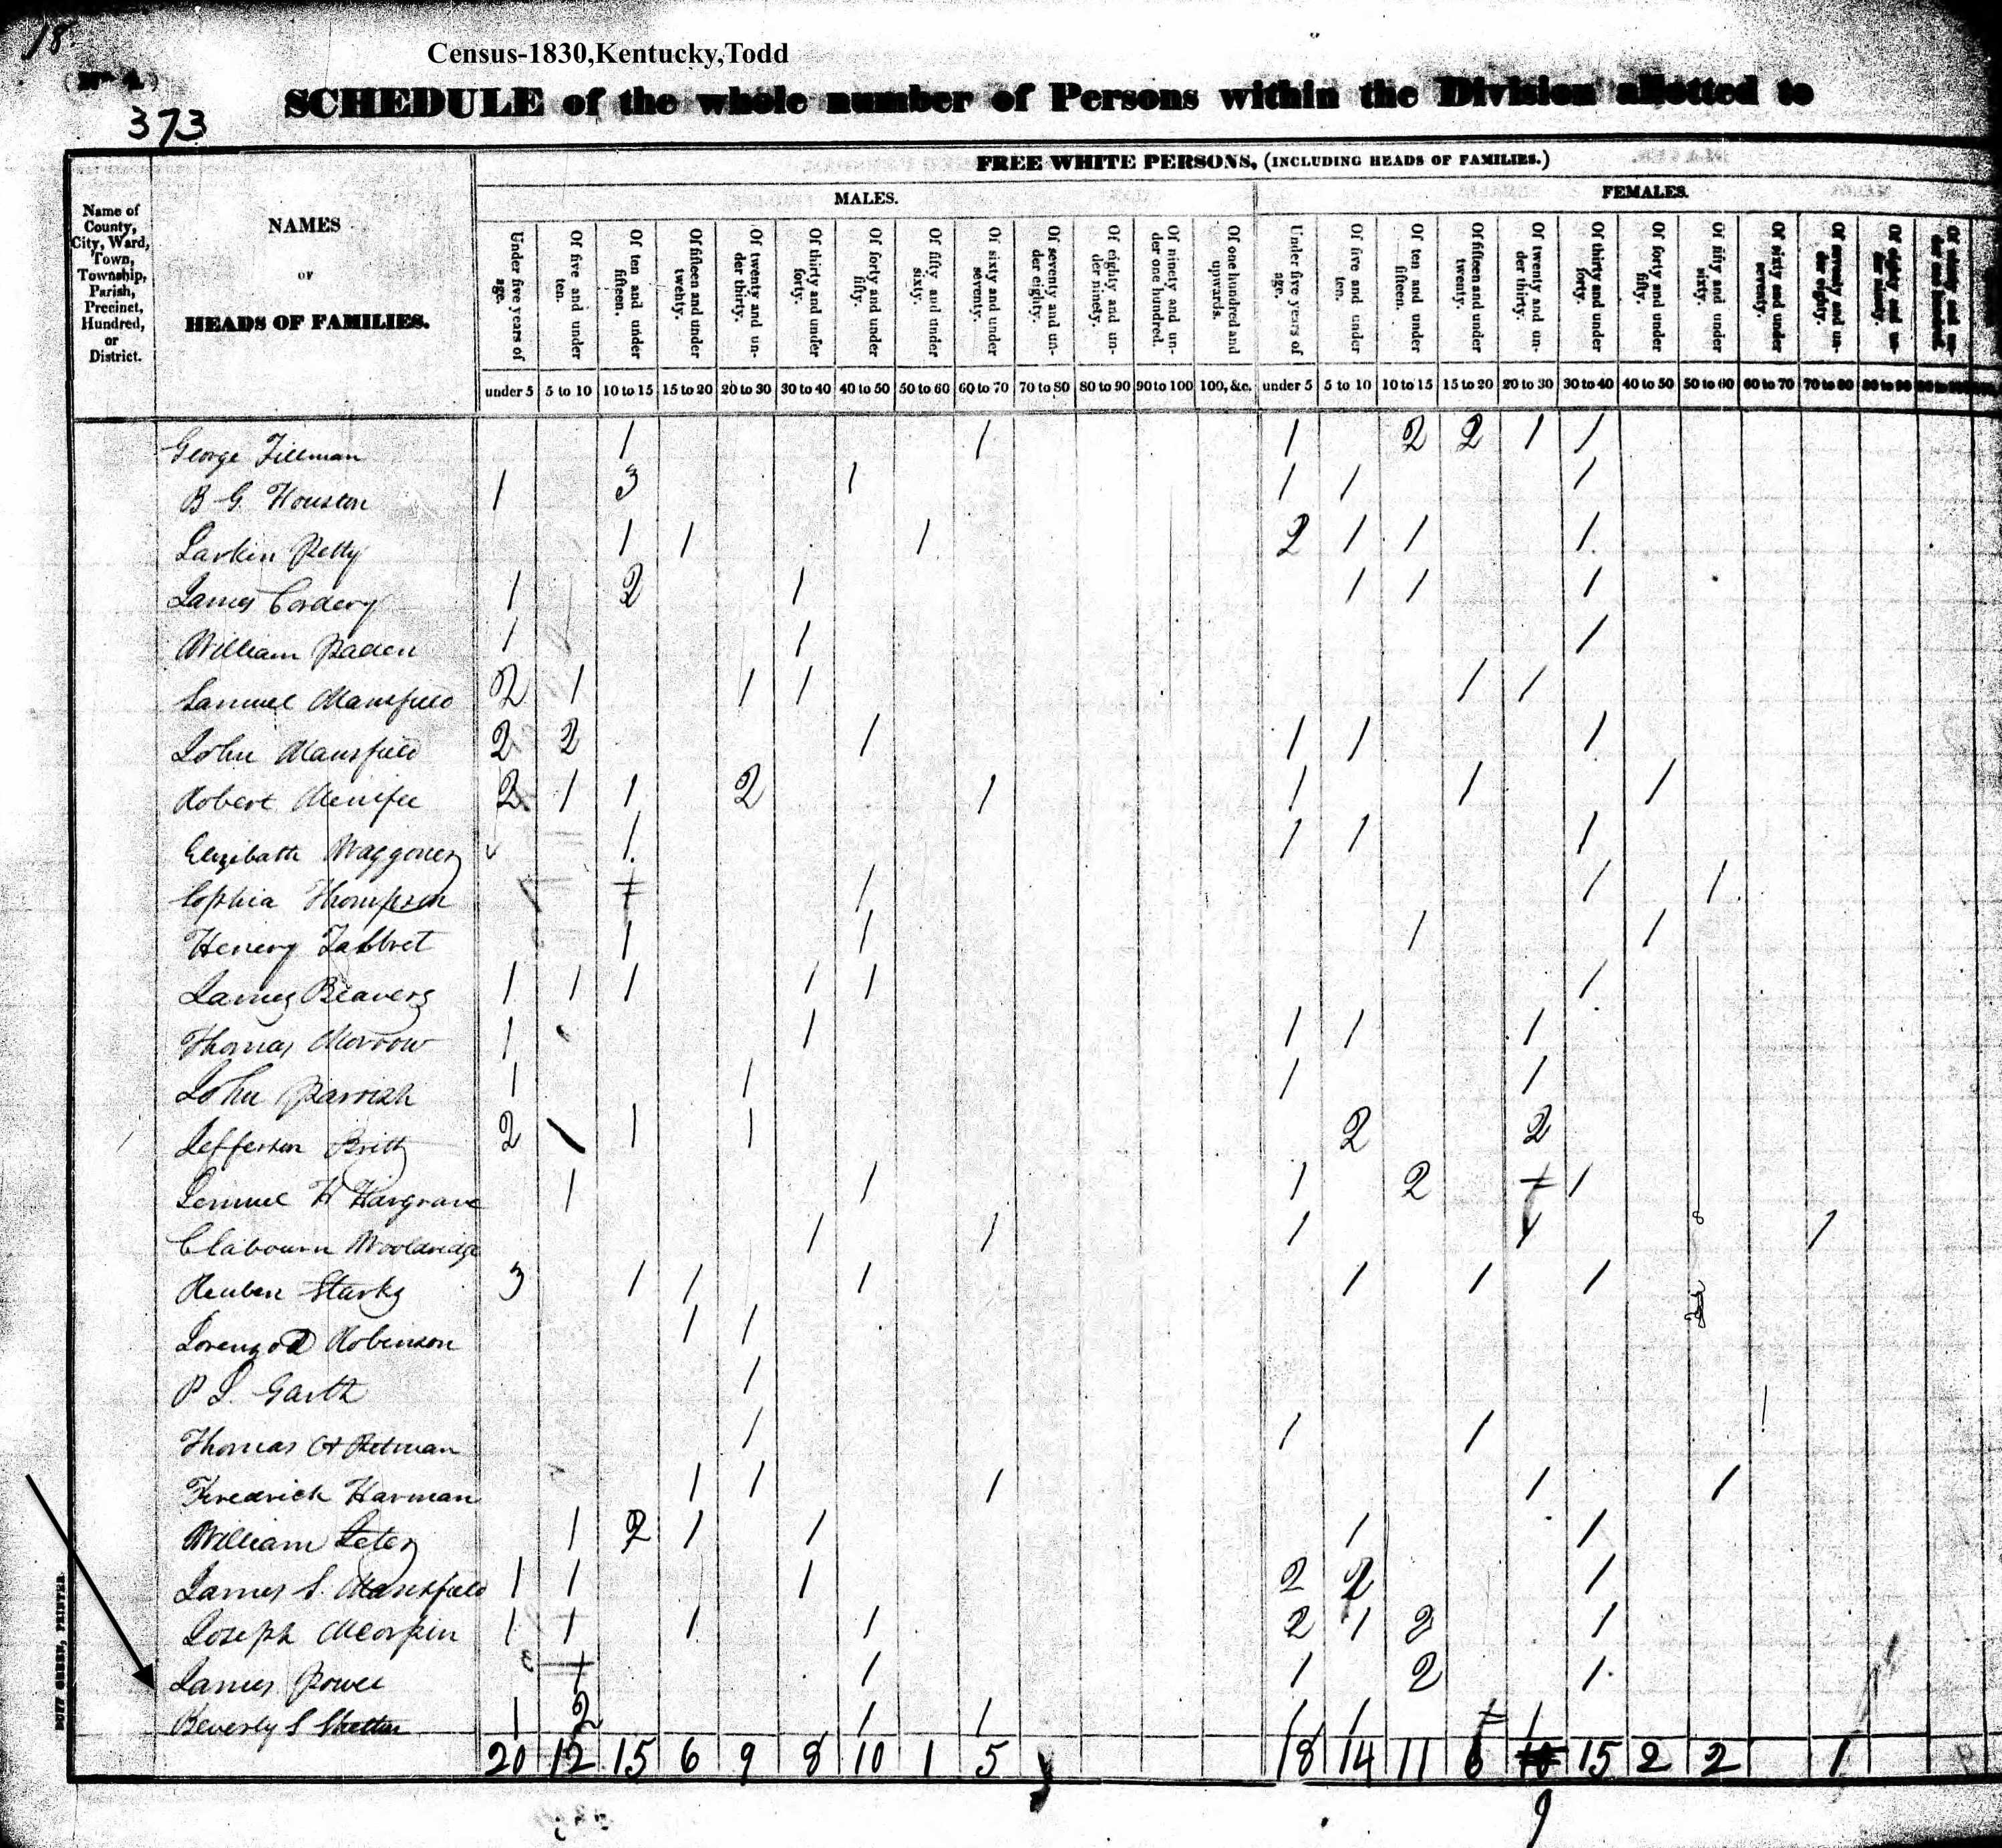 18.
Census-1830,Kentucky,Todd
373
SCHEDULE of the whole number of Persons within the Division allotted to
FREE WHITE PERSONS, (INCLUDING HEADS OF FAMILIES.)
MALES.
FEMALES.
Name of County, City, Ward, Town, Township, Parish, Precinct, Hundred, or District.
NAMES
OF
HEADS OF FAMILIES.
Under five years of age.
Of five and under ten.
Of ten and under fifteen.
Of fifteen and under twenty.
Of twenty and under thirty.
Of thirty and under forty.
Of forty and under fifty.
Of fifty and under sixty.
Of sixty and under seventy.
Of seventy and under eighty.
Of eighty and under ninety.
Of ninety and under one hundred.
Of one hundred and upwards.
Under five years of age.
Of five and under ten.
Of ten and under fifteen.
Of fifteen and under twenty.
Of twenty and under thirty.
Of thirty and under forty.
Of forty and under fifty.
Of fifty and under sixty.
Of sixty and under seventy.
Of seventy and under eighty.
Of eighty and under ninety.
Of ninety and under one hundred.
under 5 5 to 10 10 to 15 15 to 20 20 to 30 30 to 40 40 to 50 50 to 60 60 to 70 70 to 80 80 to 90 90 to 100 100, &c. under 5 5 to 10 10 to 15 15 to 20 20 to 30 30 to 40 40 to 50 50 to 60 60 to 70 70 to 80 80 to 90
George Tillman 1 1 1 2 2 1 1
B G. Houston 1 3 1 1 1 1
Larkin Petty 1 1 1 2 1 1 1
James Cordery 1 2 1 1 1 1
William Paden 1 1 1
Samuel Mansfield 2 1 1 1 1 1
John Mansfield 2 2 1 1 1 1
Robert Menifee 2 1 1 2 1 1 1 1
Elizibath Waggoner 1 1 1 1
Sophia Thompson 1 1 1
Henery 1 1 1 1
James Beavers 1 1 1 1 1 1
Thomas Morrow 1 1 1 1 1
John Parrish 1 1 1 1
Jefferson Britt 2 1 1 1 2 2
Lemuel H Hargrave 1 1 1 2 1
Clabourn Wooldridge 1 1 1 1 1
Reuben Starks 3 1 1 1 1 1 1
Lorenzo D Robinson 1 1
P L. Garth 1
Thomas 1 1 1
Fredrick Harman 1 1 1 1 1
William 1 2 1 1 1 1
James S. Mansfield 1 1 1 2 2 1
Joseph 1 1 1 1 2 1 2 1
James Powel 1 1 1 2 1
Beverly S 1 2 1 1 1 1 1
20 12 15 6 9 8 10 1 5 18 14 11 6 15 2 2 1
9
DUFF GREEN, PRINTER.